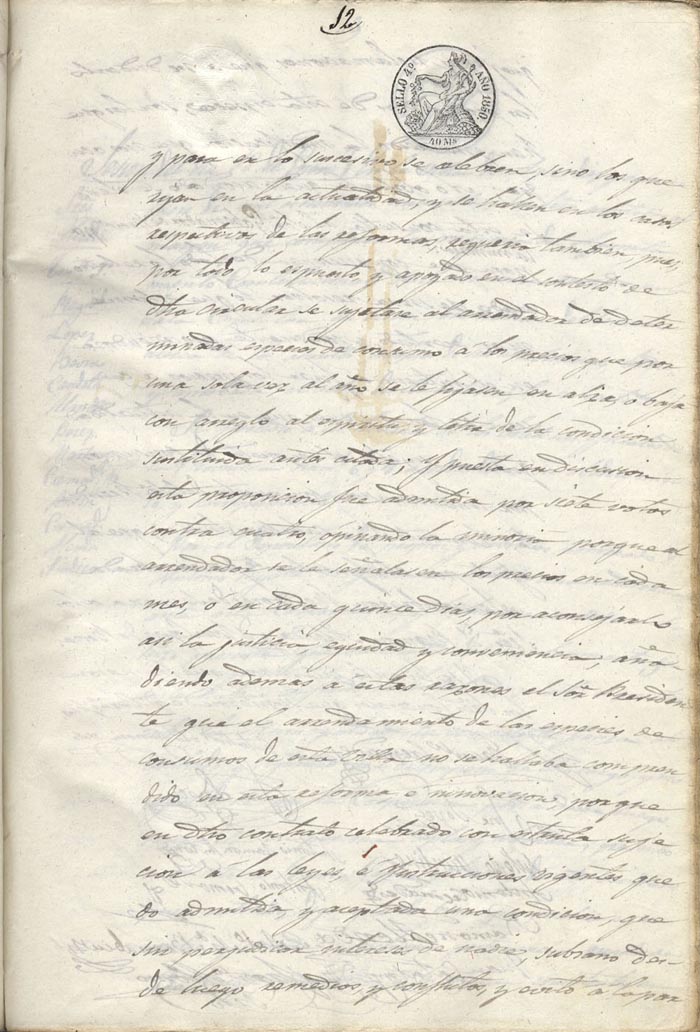 12
SELLO 4º AÑO 1850.
40 Ms
y para en lo sucesivo se celebren, sino los que
rijan en la actualidad, y se hallen en los casos
respectivos de las reformas, requeria tambien pues,
por todo lo espuesto y apoyado en el contesto de
dha circular se sujetase al arrendador de deter
minadas especies de consumo a los precios que por
una sola vez al año se le fijasen en alza, o baja
con arreglo al espiritu y letra de la condicion
sustituida antes citada; Y puesta en discusion
esta proposicion fue admitida por siete votos
contra cuatro, opinando la minoria porque al
arrendador se le señalasen los precios en cada
mes, ó en cada quince dias, por aconsejarlo
asi la justicia, equidad y conveniencia, aña-
diendo ademas a estas razones el Sor. Presiden
te que el arrendamiento de las especies de
consumos de esta Villa no se hallaba compren
dido en esta reforma e innovacion, porque
en dho contrato celebrado con estricta suje
cion á las leyes, é Ynstrucciones vigentes que
dó admitida, y aceptada una condicion, que
sin perjudicar intereses de nadie, des-
de luego remedios, y conflictos, y evitó a la par